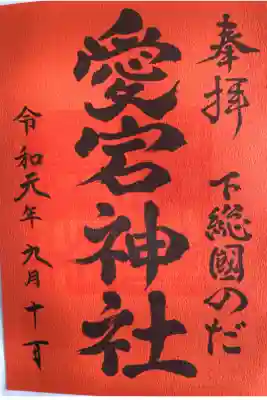 奉拝
下総國のだ
愛宕神社
令和元年九月十一日